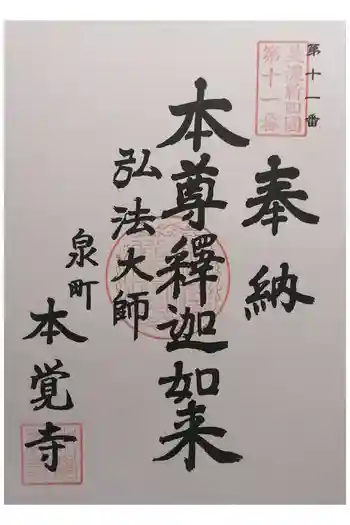 第十一番
美濃新四国
第十一番
奉納
本尊釋迦如来
弘法大師
泉町
本覚寺